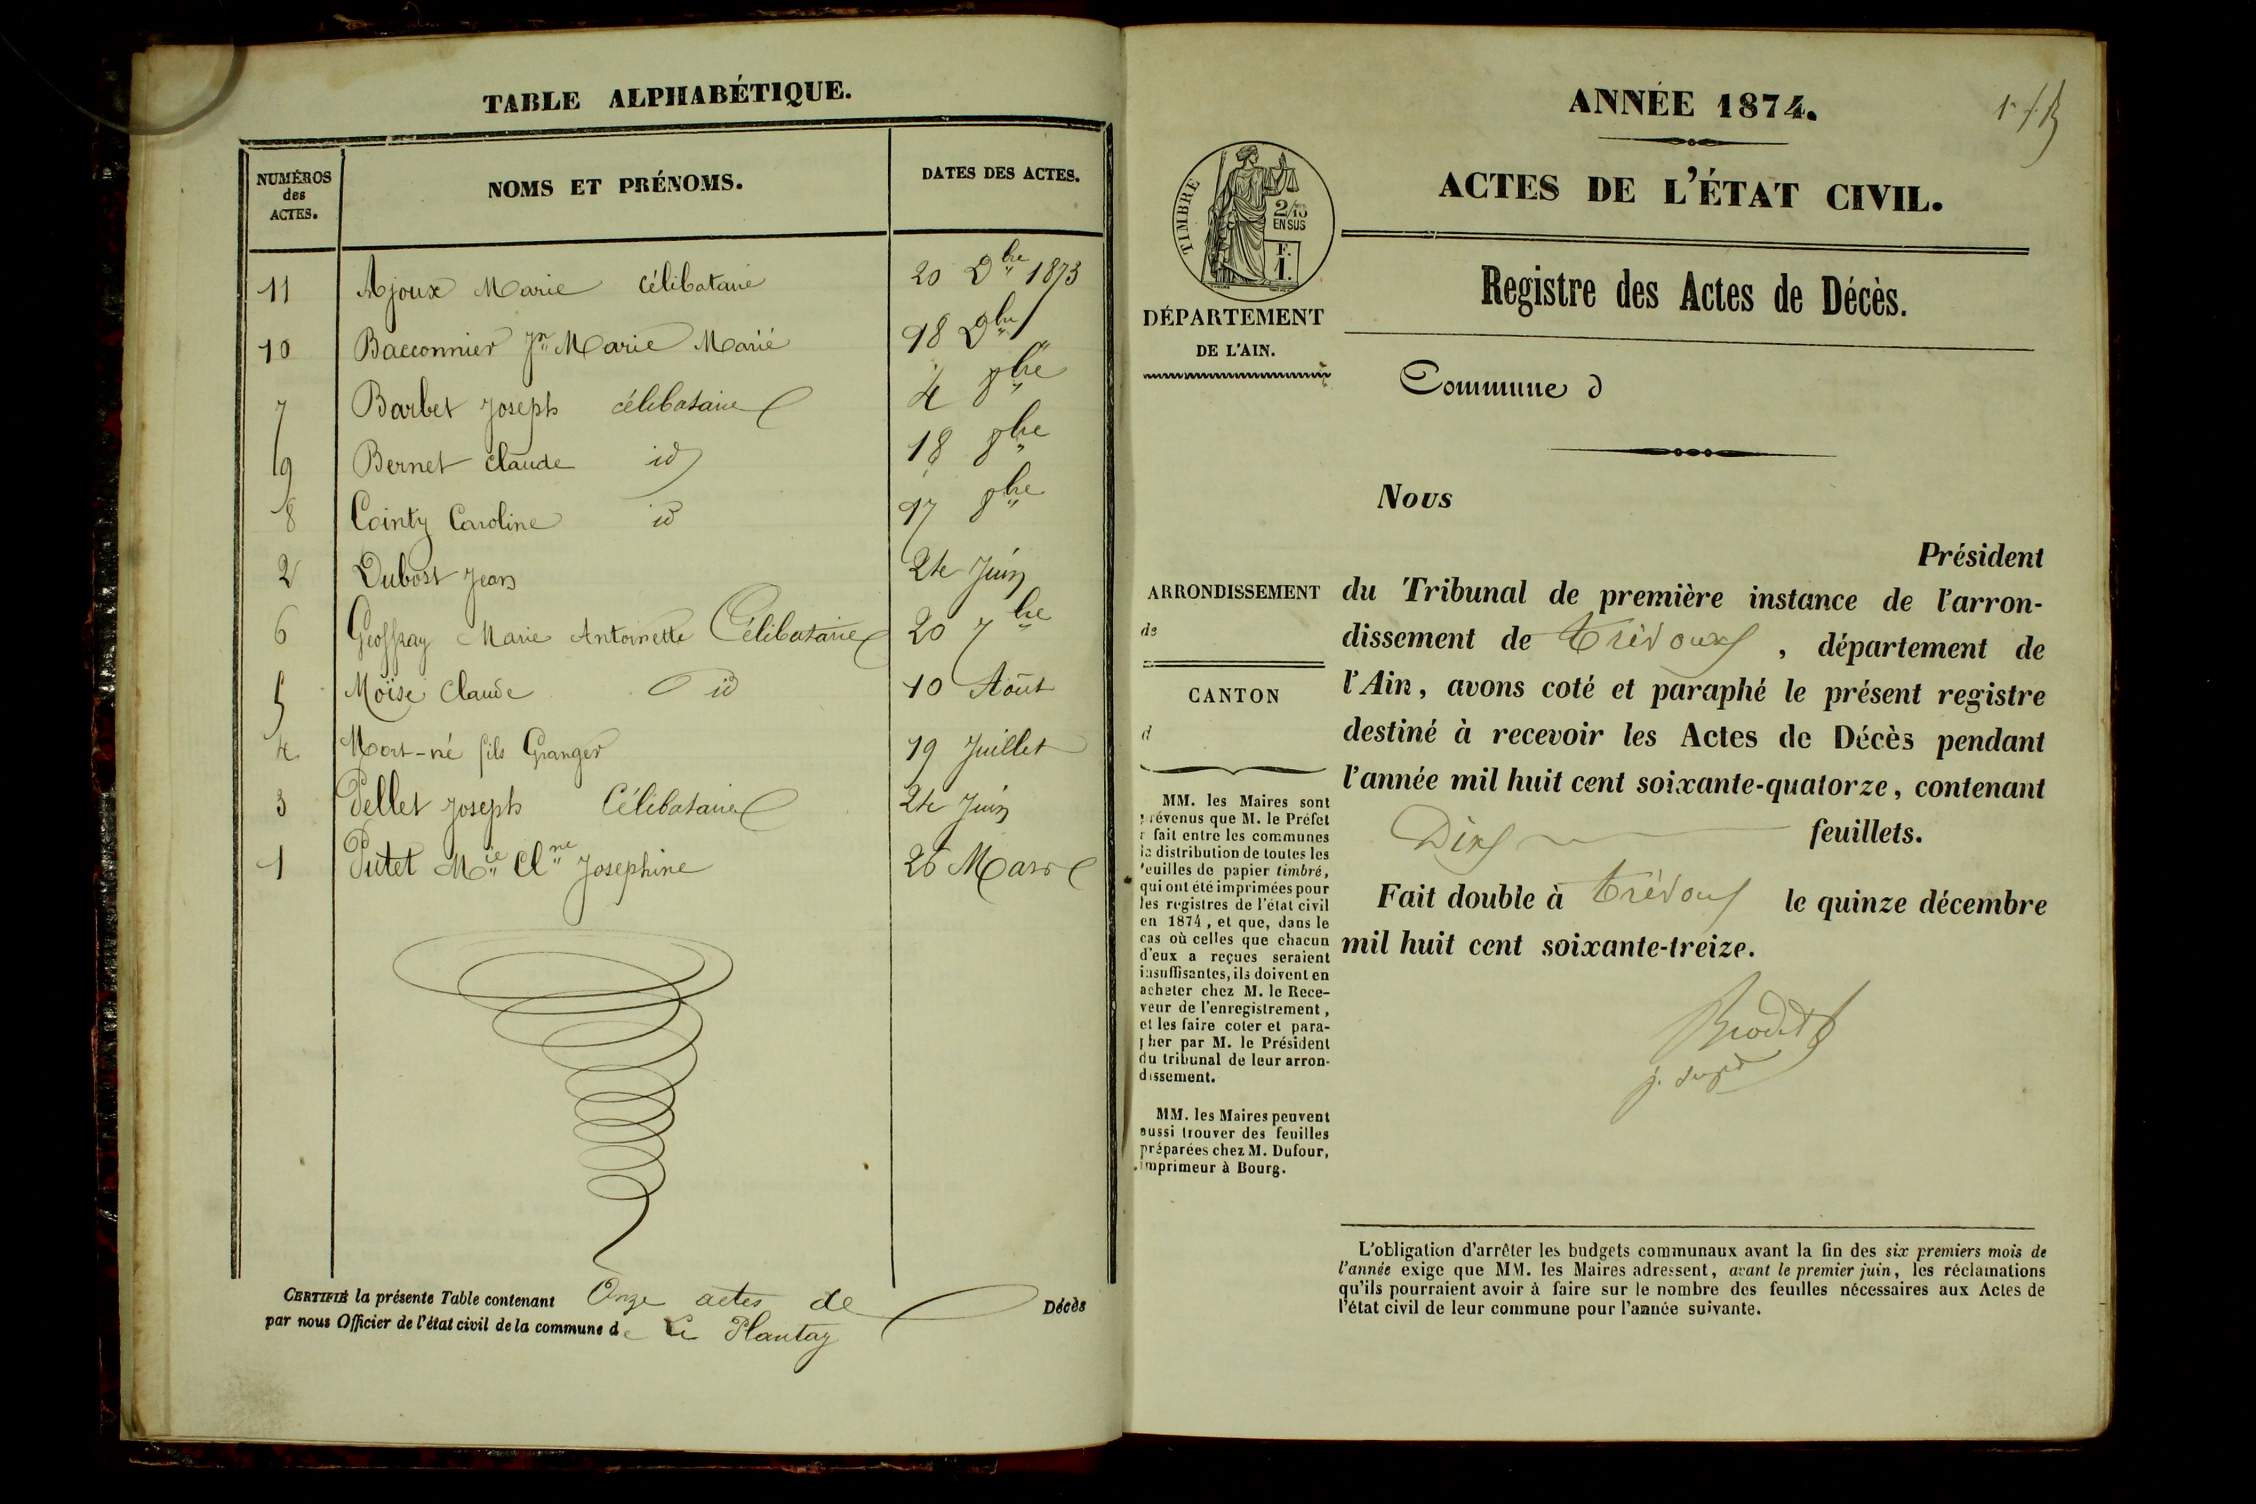 TABLE ALPHABÉTIQUE.
NUMÉROS des ACTES. NOMS ET PRÉNOMS. DATES DES ACTES.
11 Ajoux Marie célibataire 20 Dbre 1873
10 Bacconnier Jn Marie Marié 18 9bre "
7 Barbet Joseph célibataire 4 8bre
9 Bernet Claude id 18 8bre
8 Cointy Caroline id 17 8bre
2 Dubost Jean 24 Juin
6 Geoffray Marie Antoinette Célibataire 20 7bre
5 Moïse Claude id 10 Août
4 Mort-né fils Granger 19 Juillet
3 Pellet Joseph Célibataire 24 Juin
1 Putet Mie Clne Josephine 26 Mars
CERTIFIÉ la présente Table contenant Onze actes de Décès
par nous Officier de l'état civil de la commune de Le Plantay
ANNÉE 1874.
ACTES DE L'ÉTAT CIVIL.
TIMBRE
2/10
EN SUS
F.
1.
Registre des Actes de Décès.
DÉPARTEMENT
DE L'AIN.
Commune d
Nous
Président
du Tribunal de première instance de l'arron-
dissement de Trévoux, département de
l'Ain, avons coté et paraphé le présent registre
destiné à recevoir les Actes de Décès pendant
l'année mil huit cent soixante-quatorze, contenant
Dix feuillets.
Fait double à Trévoux le quinze décembre
mil huit cent soixante-treize.
ARRONDISSEMENT
de
CANTON
d
MM. les Maires sont
prévenus que M. le Préfet
a fait entre les communes
la distribution de toutes les
feuilles de papier timbré,
qui ont été imprimées pour
les registres de l'état civil
en 1874, et que, dans le
cas où celles que chacun
d'eux a reçues seraient
insuffisantes, ils doivent en
acheter chez M. le Rece-
veur de l'enregistrement,
et les faire coter et para-
pher par M. le Président
du tribunal de leur arron-
dissement.
MM. les Maires peuvent
aussi trouver des feuilles
préparées chez M. Dufour,
imprimeur à Bourg.
L'obligation d'arrêter les budgets communaux avant la fin des six premiers mois de
l'année exige que MM. les Maires adressent, avant le premier juin, les réclamations
qu'ils pourraient avoir à faire sur le nombre des feuilles nécessaires aux Actes de
l'état civil de leur commune pour l'année suivante.